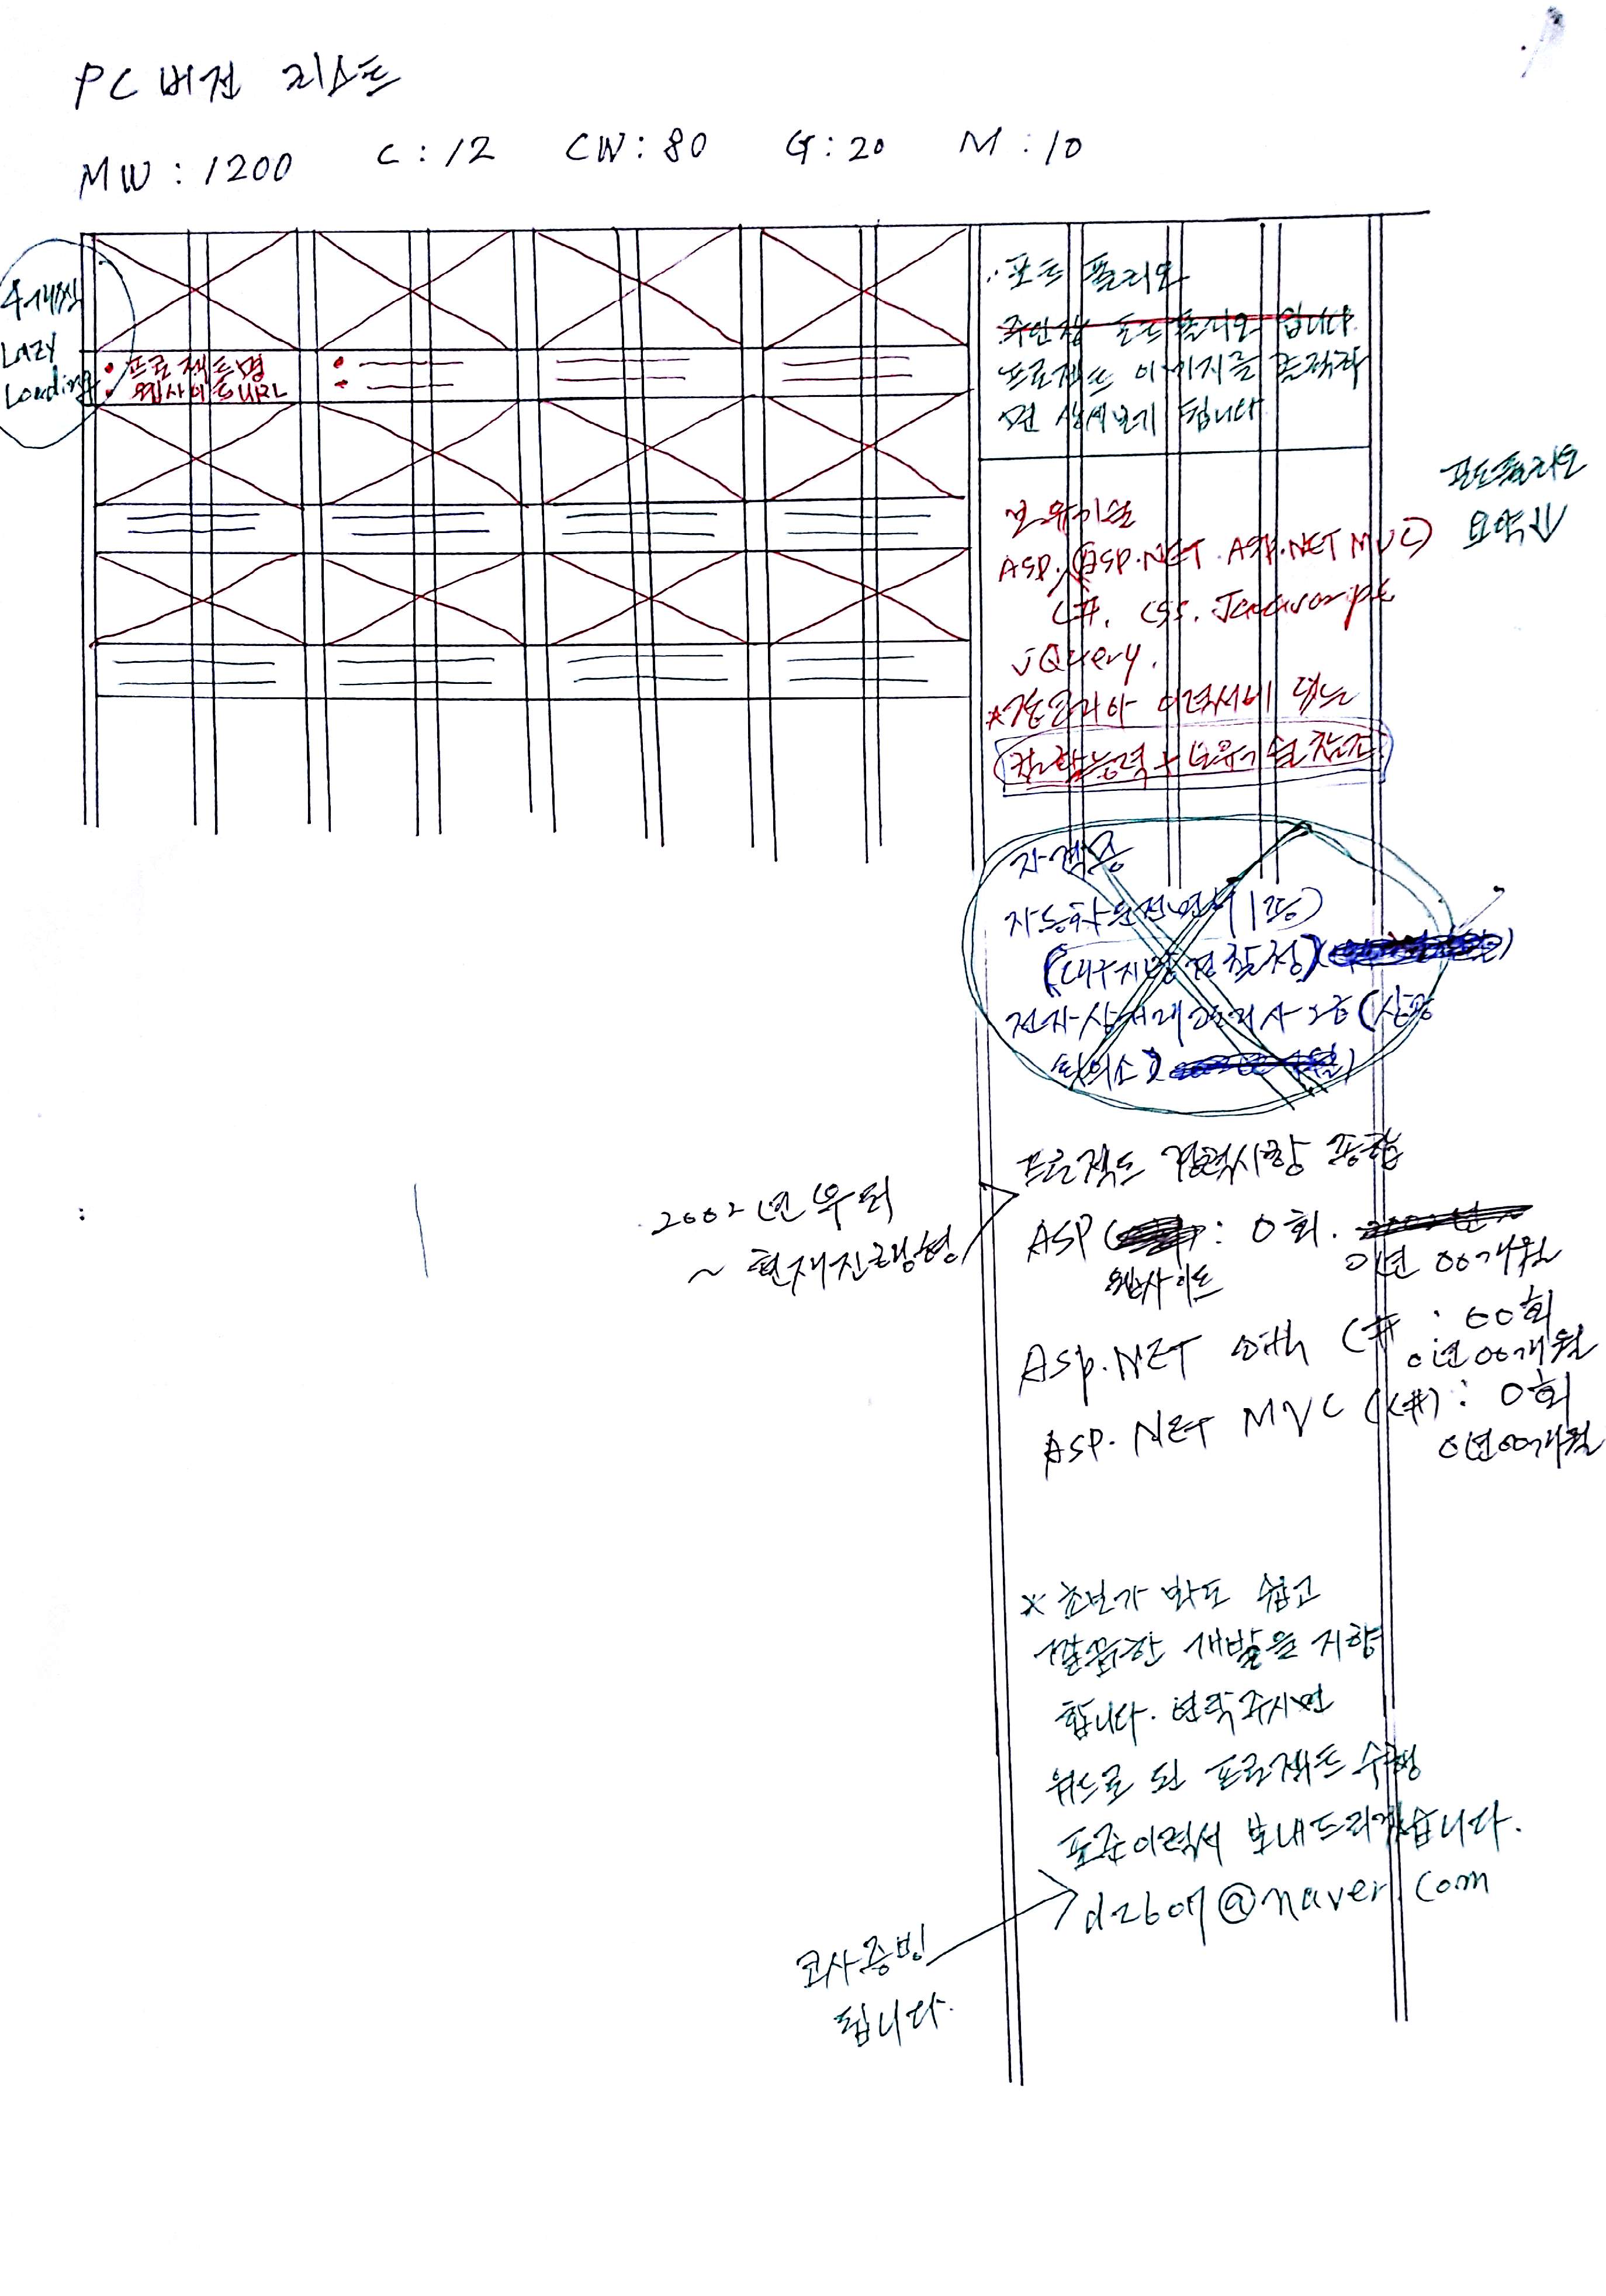 PC 버전 리스트
MW : 1200 C : 12 CW : 80 G : 20 M : 10
4개씩
Lazy
Loading
프로젝트명
웹사이트URL
포트폴리오
포트폴리오 입니다.
프로젝트 이미지를 클릭하
면 상세보기 됩니다
포트폴리오
요약↓
보유기술
ASP, (ASP.NET. ASP.NET MVC)
C#. CSS. Javascript
jQuery.
보유기술참조
자격증
자동차운전면허(1종)
(대구지방경찰청)
전자상거래관리사 2급 (상공
회의소)
프로젝트 경력사항 종합
2002년부터
~ 현재진행형
ASP : 0회.
웹사이트
0년 00개월
ASP.NET with C# : 00회
0년 00개월
ASP.NET MVC (C#) : 0회
0년 00개월
※ 초보가 봐도 쉽고
깔끔한 개발을 지향
합니다. 연락주시면
워드로 된 프로젝트 수행
표준이력서 보내드리겠습니다.
@naver.com
코사증빙
됩니다.